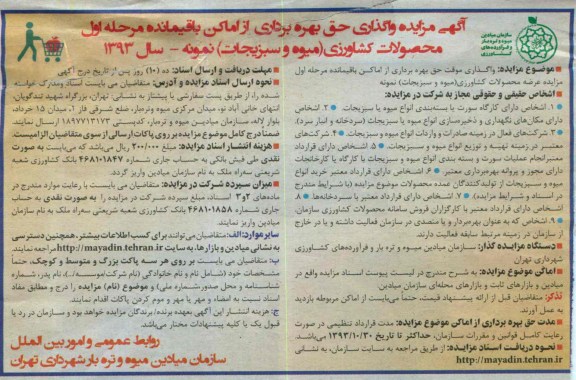 آگهی مزایده واگذاری حق بهره برداری از اماکن باقیمانده مرحله اول
محصولات کشاورزی (میوه و سبزیجات) نمونه - سال ۱۳۹۳
سازمان میادین
موضوع مزایده: واگذاری موقت حق بهره برداری از اماکن باقیمانده مرحله اول
مزایده عرضه محصولات کشاورزی (میوه و سبزیجات) نمونه
اشخاص حقیقی و حقوقی مجاز به شرکت در مزایده:
۱. اشخاص دارای کارگاه سورت یا بسته‌بندی انواع میوه یا سبزیجات ۲. اشخاص
دارای مکان‌های نگهداری و ذخیره‌سازی انواع میوه یا سبزیجات (سردخانه و انبار سرد).
۳. شرکت‌های فعال در زمینه صادرات و واردات انواع میوه یا سبزیجات ۴. شرکت‌های
معتبر در زمینه تهیه و توزیع انواع میوه و سبزیجات. ۵. اشخاص دارای قرارداد
معتبر انجام عملیات سورت و بسته بندی انواع میوه یا سبزیجات با کارگاه یا کارخانجات
دارای مجوز و پروانه بهره‌برداری معتبر. ۶. اشخاص دارای قرارداد معتبر خرید انواع
میوه و سبزیجات از تولیدکنندگان عمده محصولات موضوع مزایده (با شرایط مندرج
در اسناد و شرایط مزایده) ۷. اشخاص دارای قرارداد معتبر با سردخانه‌ها ۸.
اشخاص دارای قرارداد معتبر با کارگزاران فروش سامانه محصولات کشاورزی سازمان.
۹. اشخاص که به عنوان بهره‌بردار و یا متصدی در سازمان فعالیت داشته و یا در خارج
از سازمان در زمینه مرتبط سابقه فعالیت دارند.
دستگاه مزایده گذار: سازمان میادین میوه و تره بار و فرآورده‌های کشاورزی
شهرداری تهران
اماکن موضوع مزایده: به شرح مندرج در لیست پیوست اسناد مزایده واقع در
میادین و بازارهای ثابت و بازارهای محله‌ای سازمان میادین
تذکر: متقاضیان قبل از ارائه پیشنهاد قیمت، حتماً می‌بایست از اماکن مربوطه بازدید
به عمل آورند.
مدت حق بهره برداری از اماکن موضوع مزایده: مدت قرارداد تنظیمی در صورت
رعایت کامل قوانین و مقررات سازمان، حداکثر تا تاریخ ۱۳۹۳/۱۰/۳۰ می‌باشد.
نحوه دریافت اسناد مزایده: از طریق مراجعه به سایت سازمان، به نشانی
http://mayadin.tehran.ir
مهلت دریافت و ارسال اسناد: ده (۱۰) روز پس از تاریخ درج آگهی
نحوه ارسال اسناد مزایده و آدرس: متقاضیان می بایست اسناد ومدارک خواسته
شده را، از طریق پست سفارشی یا پیشتاز به نشانی: تهران، بزرگراه شهید تندگویان،
انتهای خانی آباد نو، میدان مرکزی میوه وتره‌بار، ضلع شرقی فاز ۱، میدان ۱۵ خرداد،
بلوار لاله، سازمان میادین میوه و تره‌بار، کدپستی ۱۸۹۷۷۱۳۱۷۳ ارسال نمایند.
ضمناً درج کامل موضوع مزایده بر روی پاکات ارسالی از سوی متقاضیان الزامیست.
هزینه انتشار اسناد مزایده: مبلغ ۲۰۰/۰۰۰ ریال می‌باشد که می‌بایست به صورت
نقدی طی فیش بانکی به حساب جاری شماره ۴۶۸۱۰۱۸۴۷ بانک کشاورزی شعبه
شریعتی سه‌راه ملک به نام سازمان میادین واریز گردد.
میزان سپرده شرکت در مزایده: متقاضیان می بایست با رعایت موارد مندرج در
ماده‌های ۲و۳ اسناد، مبلغ سپرده شرکت در مزایده را به صورت نقدی به حساب
جاری شماره ۴۶۸۱۰۱۸۵۸ بانک کشاورزی شعبه شریعتی سه‌راه ملک به نام سازمان
میادین واریز نمایند.
سایر موارد: الف: متقاضیان می‌توانند برای کسب اطلاعات بیشتر، همچنین دسترسی
به نشانی میادین و بازارها، به سایت http://mayadin.tehran.ir مراجعه نمایند.
ب: متقاضیان می بایست بر روی هر سه پاکت بزرگ و متوسط و کوچک، حتماً
مشخصات خود (شامل نام و نام خانوادگی (نام شرکت/موسسه/...)، نام پدر، شماره
شناسنامه و محل صدور، شماره ملی) و موضوع (نام) مزایده را درج و مطابق مفاد
اسناد نسبت به امضاء و مهر یا مهر و موم کردن پاکات اقدام نمایند.
ج: هزینه انتشار این آگهی بعهده برنده/ برندگان مزایده خواهد بود و سازمان در رد یا
قبول یک یا کلیه پیشنهادات مختار می‌باشد.
روابط عمومی و امور بین الملل
سازمان میادین میوه و تره بار شهرداری تهران